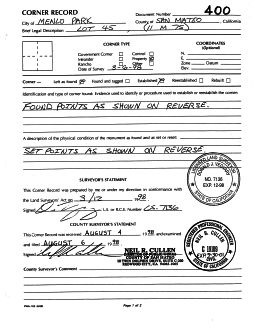 CORNER RECORD
Document Number 400
City of MENLO PARK County of SAN MATEO, California
Brief Legal Description LOT 45, (11 M. 75)
CORNER TYPE
COORDINATES
(Optional)
Government Corner Control N.
Meander Property E.
Rancho Other Zone Datum
Date of Survey Elev.
Corner — Left as found Found and tagged Established Reestablished Rebuilt
Identification and type of corner found: Evidence used to identify or procedure used to establish or reestablish the corner:
FOUND POINTS AS SHOWN ON REVERSE.
A description of the physical condition of the monument as found and as set or reset:
SET POINTS AS SHOWN ON REVERSE
SURVEYOR'S STATEMENT
This Corner Record was prepared by me or under my direction in conformance with
the Land Surveyors' Act on 3/12 1998
Signed L.S. or R.C.E. Number LS-7136
NO. 7136
EXP. 12-98
COUNTY SURVEYOR'S STATEMENT
This Corner Record was received AUGUST 4 1998 and examined
and filed AUGUST 6 1998
Signed
NEIL R. CULLEN
COUNTY OF SAN MATEO
REDWOOD CITY, CA
REGISTERED PROFESSIONAL ENGINEER
NEIL R. CULLEN
STATE OF CALIFORNIA
County Surveyor's Comment
Page 1 of 2